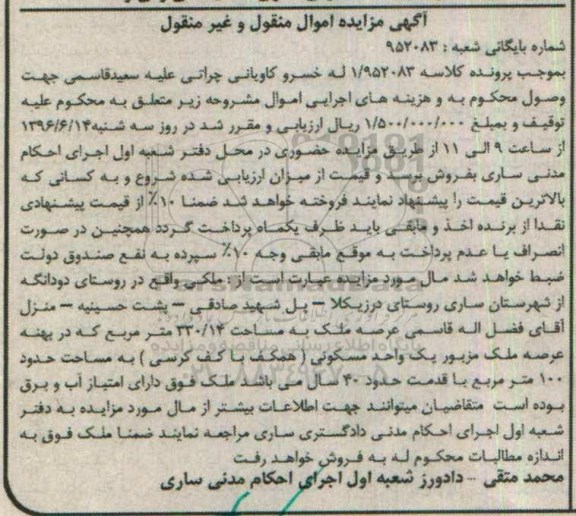 آگهی مزایده اموال منقول و غیر منقول
شماره بایگانی شعبه : ۹۵۲۰۸۳
بموجب پرونده کلاسه ۱/۹۵۲۰۸۳ له خسرو کاویانی چراتی علیه سعیدقاسمی جهت
وصول محکوم به و هزینه های اجرایی اموال مشروحه زیر متعلق به محکوم علیه
توقیف و بمبلغ ۱/۵۰۰/۰۰۰/۰۰۰ ریال ارزیابی و مقرر شد در روز سه شنبه۱۳۹۶/۶/۱۴
از ساعت ۹ الی ۱۱ از طریق مزایده حضوری در محل دفتر شعبه اول اجرای احکام
مدنی ساری بفروش برسد و قیمت از میزان ارزیابی شده شروع و به کسانی که
بالاترین قیمت را پیشنهاد نمایند فروخته خواهد شد ضمنا ۱۰٪ از قیمت پیشنهادی
نقدا از برنده اخذ و مابقی باید ظرف یکماه پرداخت گردد همچنین در صورت
انصراف یا عدم پرداخت به موقع مابقی وجه ۱۰٪ سپرده به نفع صندوق دولت
ضبط خواهد شد مال مورد مزایده عبارت است از: ملکی واقع در روستای دودانگه
از شهرستان ساری روستای درزیکلا – پل شهید صادقی – پشت حسینیه – منزل
آقای فضل اله قاسمی عرصه ملک به مساحت ۳۳۰/۱۴ متر مربع که در پهنه
عرصه ملک مزبور یک واحد مسکونی ( همکف با کف کرسی ) به مساحت حدود
۱۰۰ متر مربع با قدمت حدود ۴۰ سال می باشد ملک فوق دارای امتیاز آب و برق
بوده است متقاضیان میتوانند جهت اطلاعات بیشتر از مال مورد مزایده به دفتر
شعبه اول اجرای احکام مدنی دادگستری ساری مراجعه نمایند ضمنا ملک فوق به
اندازه مطالبات محکوم له به فروش خواهد رفت
محمد متقی – دادورز شعبه اول اجرای احکام مدنی ساری